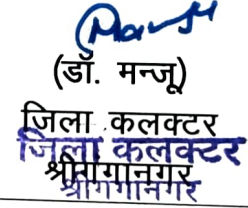 (डॉ. मन्जू)
जिला कलक्टर
जिला कलक्टर
श्रीगंगानगर
श्रीगंगानगर